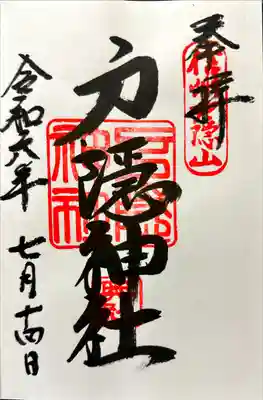 奉拝
戸隠神社
令和六年 七月十四日
戸隠神社